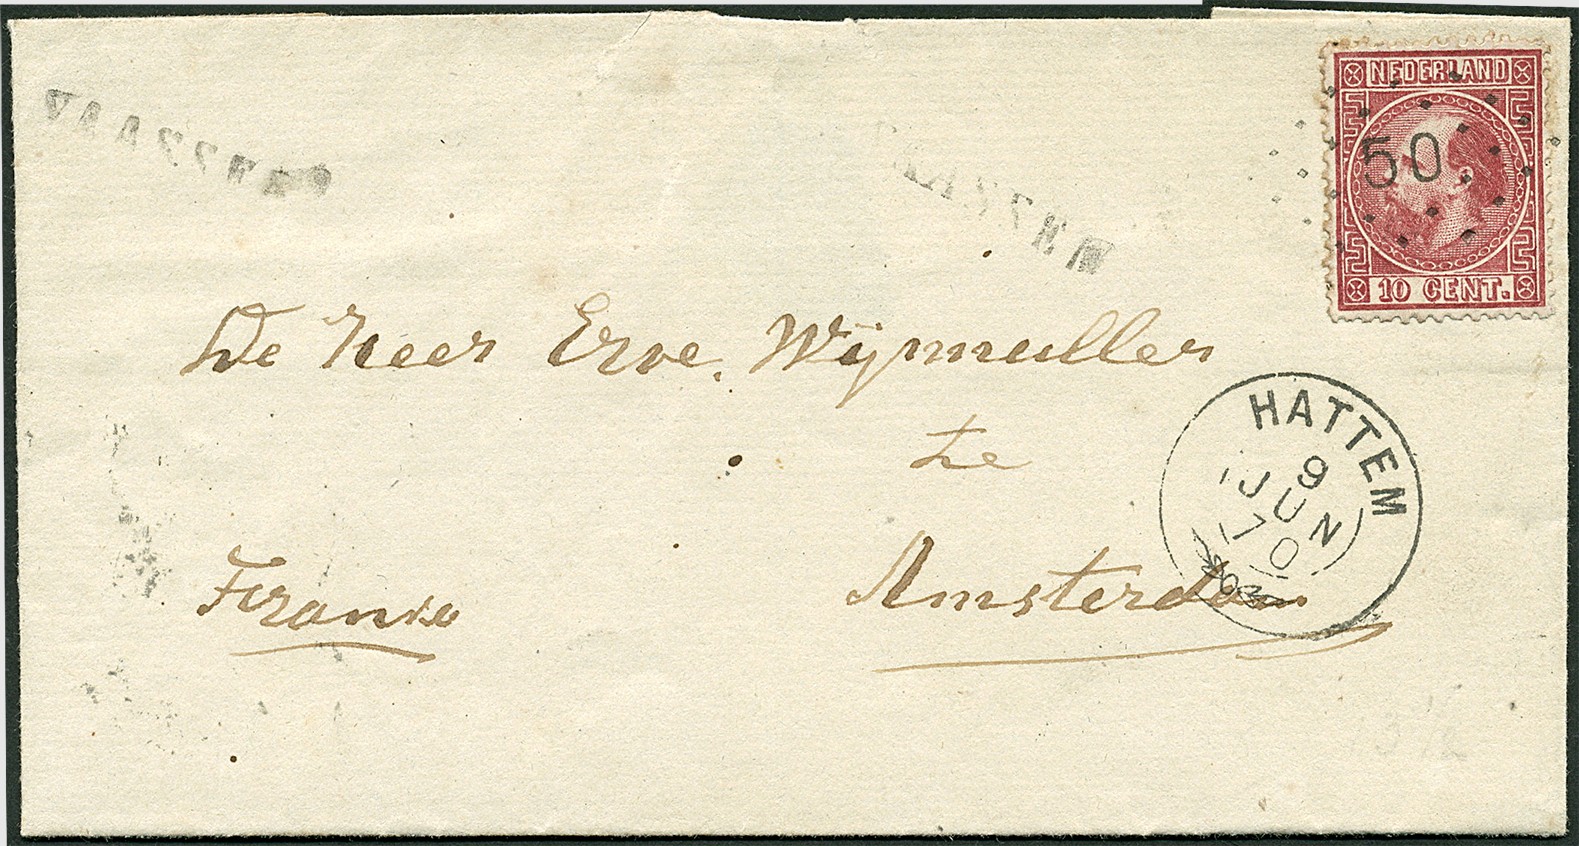 VAASSEN
NEDERLAND
50
10 CENT.
De Heer Erve. Wijmuller
te
Amsterdam
Franko
HATTEM
9
JUN
70